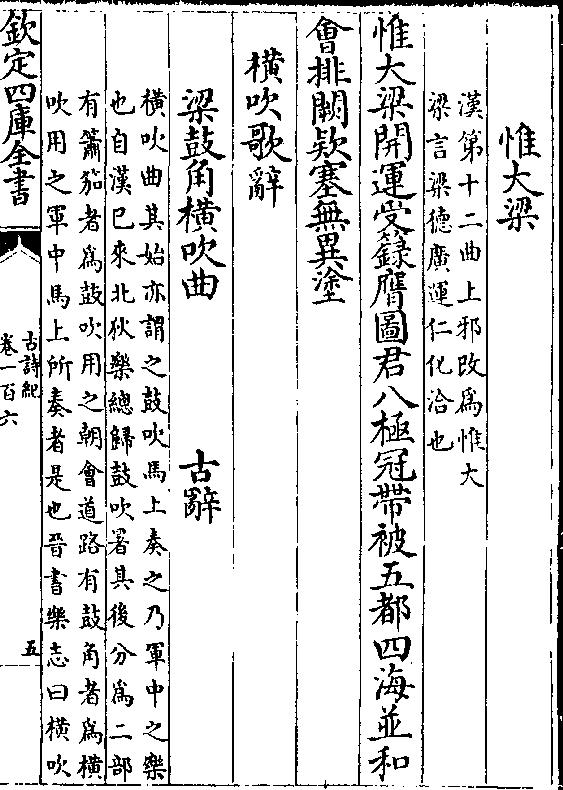 惟大梁
漢第十二曲上邪改爲惟大
梁言梁德廣運仁化洽也
惟大梁開運受籙膺圖君八極冠帶被五都四海並和
會排闕欵塞無異塗
橫吹歌辭
梁鼓角橫吹曲　古辭
橫吹曲其始亦謂之鼓吹馬上奏之乃軍中之樂
也自漢已來北狄樂總歸鼓吹署其後分爲二部
有簫笳者爲鼓吹用之朝會道路有鼓角者爲橫
吹用之軍中馬上所奏者是也晉書樂志曰橫吹
欽定四庫全書
古詩紀
卷一百六
五